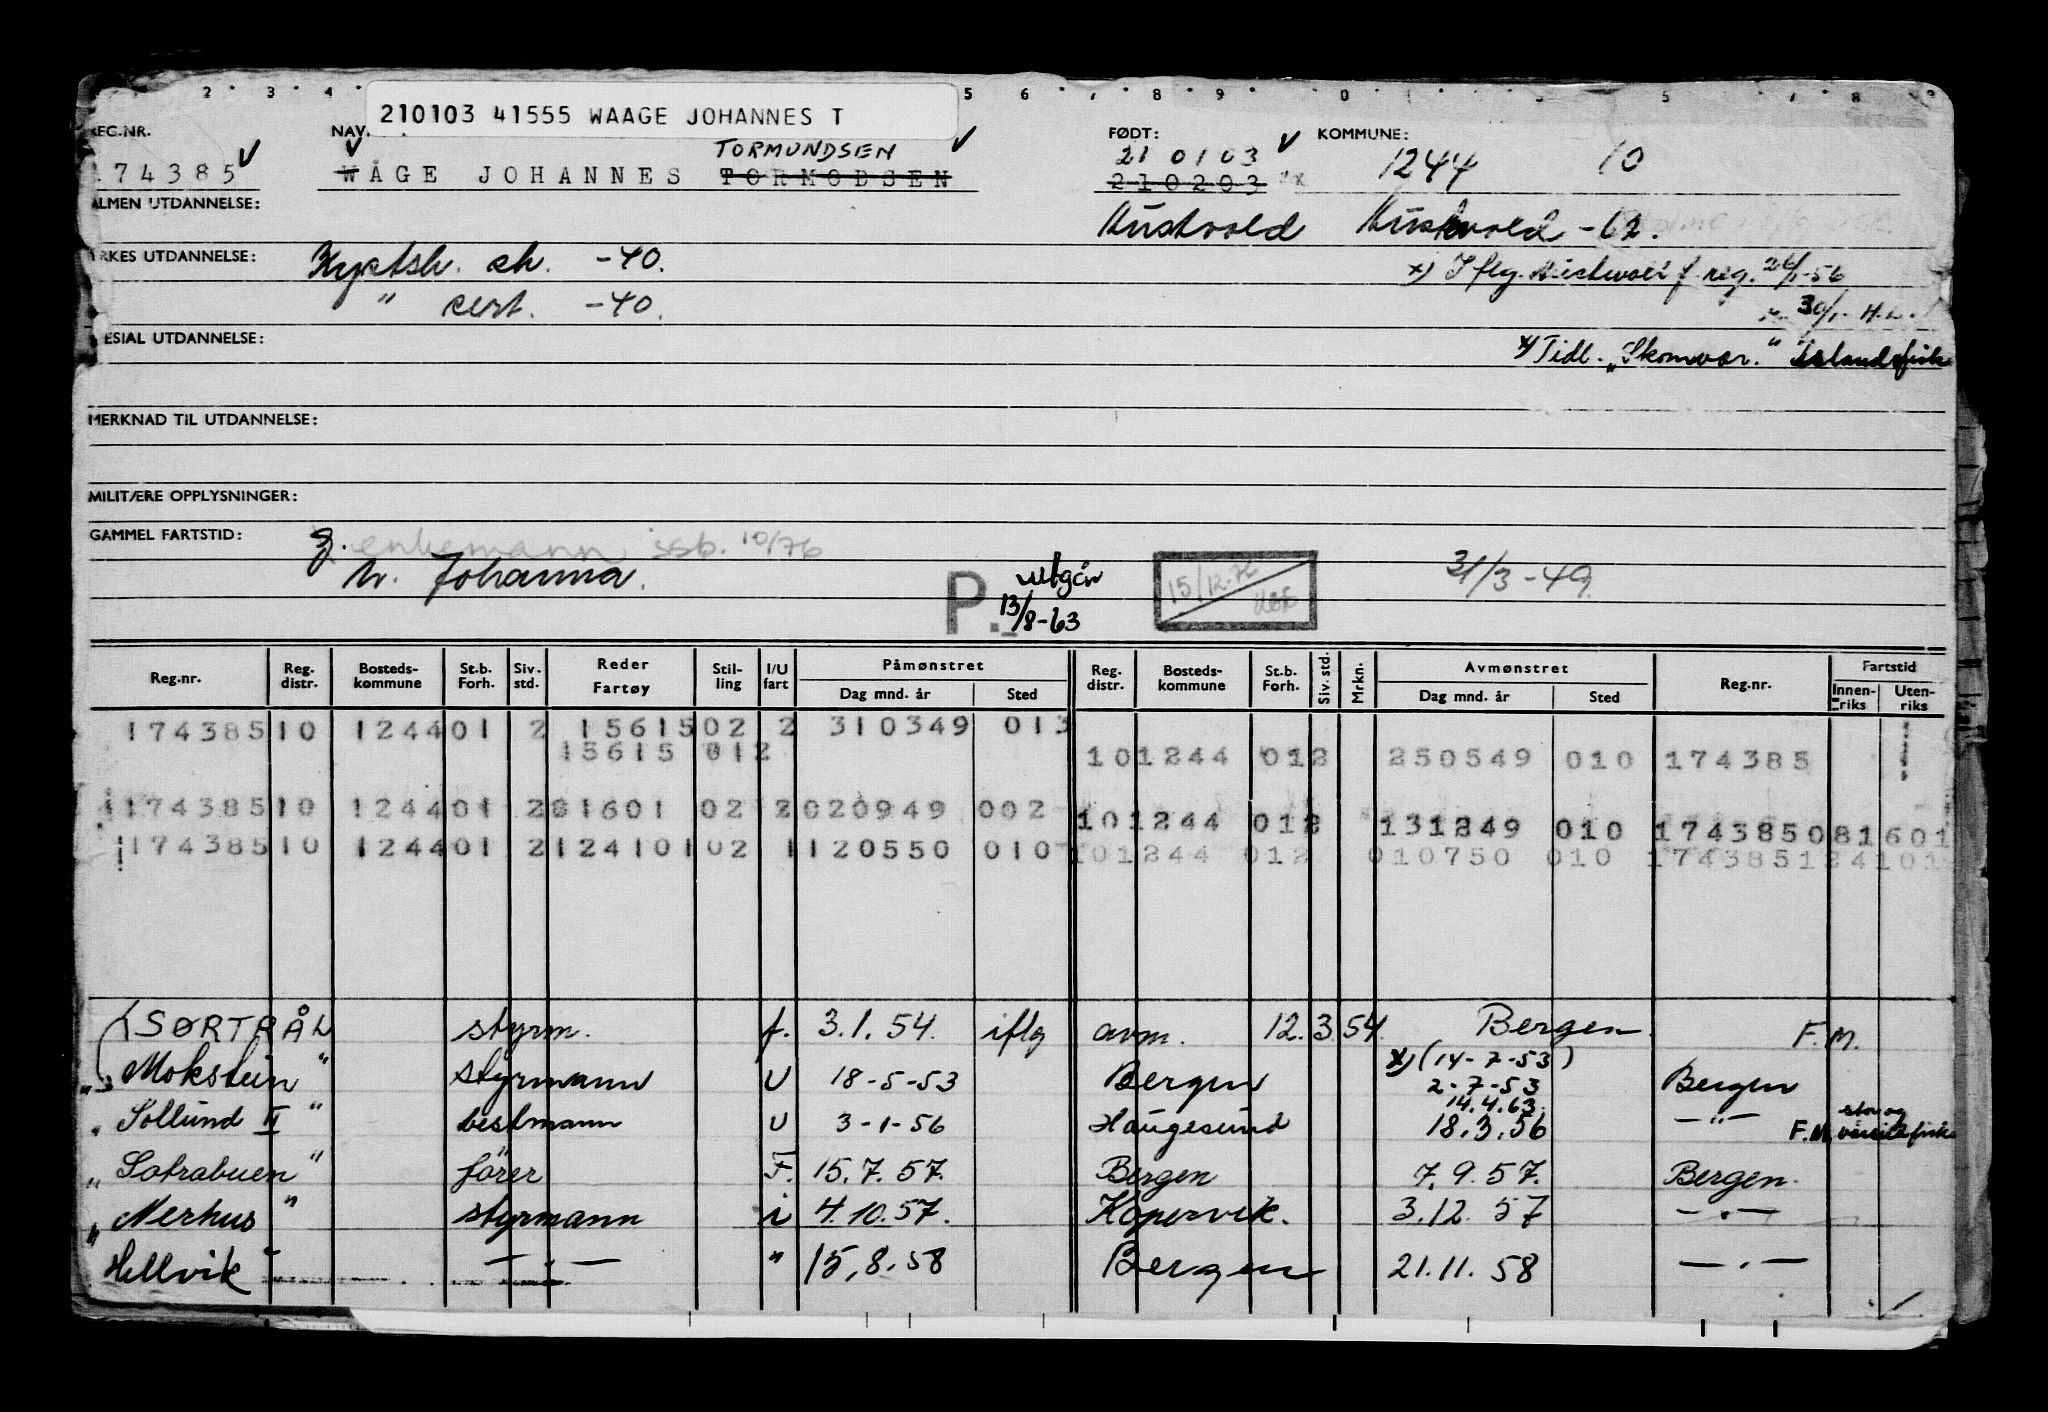 210103 41555 WAAGE JOHANNES T
EG.NR. NAV. FØDT: KOMMUNE:
TORMUNDSEN
174385 WÅGE JOHANNES TORMODSEN 210103 1244 10
210203
ALMEN UTDANNELSE:
Austvold Austvold -62.
YRKES UTDANNELSE: Kystsk. ek. -40.
x) I flg. f. reg. 26/1-56
" cert. -40. 30/1- H.L.
SPESIAL UTDANNELSE:
x) Tidl. "Skomvær." Islandsfisk
MERKNAD TIL UTDANNELSE:
MILITÆRE OPPLYSNINGER:
GAMMEL FARTSTID: enkemann, ssb. 10/76
Johanna. P. utgår 13/8-63 15/12-76 31/3-49
Reg.nr. Reg. distr. Bosteds-kommune St.b. Forh. Siv. std. Reder Fartøy Stil-ling I/U fart Påmønstret Dag mnd. år Sted Reg. distr. Bosteds-kommune St.b. Forh. Siv. std. Mrkn. Avmønstret Dag mnd. år Sted Reg.nr. Fartstid Innen-riks Uten-riks
174385 10 1244 01 2 15615 02 2 310349 013
15615 012 10 1244 012 250549 010 174385
174385 10 1244 01 2 81601 02 2 020949 002 10 1244 012 131249 010 174385 081601
174385 10 1244 01 2 124101 02 1 120550 010 10 1244 012 010750 010 174385 124101
SØRTRÅL styrm. f. 3.1.54. iflg avm. 12.3.54. Bergen. F.M.
x) (14-7-53)
" Mokstein " styrmann U 18-5-53 Bergen 2-7-53 Bergen
14.4.63.
" Sollund II " bestmann U 3-1-56 Haugesund 18.3.56 — " — F.M. stor og vårsildfiske
" Sotrabuen " fører F. 15.7.57. Bergen 7.9.57. Bergen.
" Nerhus " styrmann i 4.10.57. Kopervik. 3.12.57 — . —
Hellvik " — " — " 15.8.58 Bergen 21.11.58 — . —